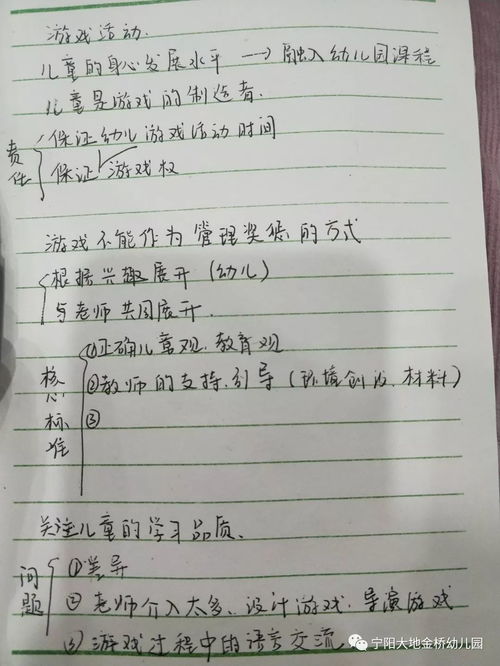 游戏活动.
儿童的身心发展水平 → 融入幼儿园课程
儿童是游戏的制造者.
责任
保证幼儿游戏活动时间
保证游戏权
游戏不能作为管理奖惩的方式
根据兴趣展开（幼儿）
与老师共同展开.
核心标准
①正确儿童观.教育观
②教师的支持.引导（环境创设、材料）
③
关注儿童的学习品质、
问题
①差异
② 老师介入太多、设计游戏.导演游戏
③ 游戏过程中的语言交流
宁阳大地金桥幼儿园